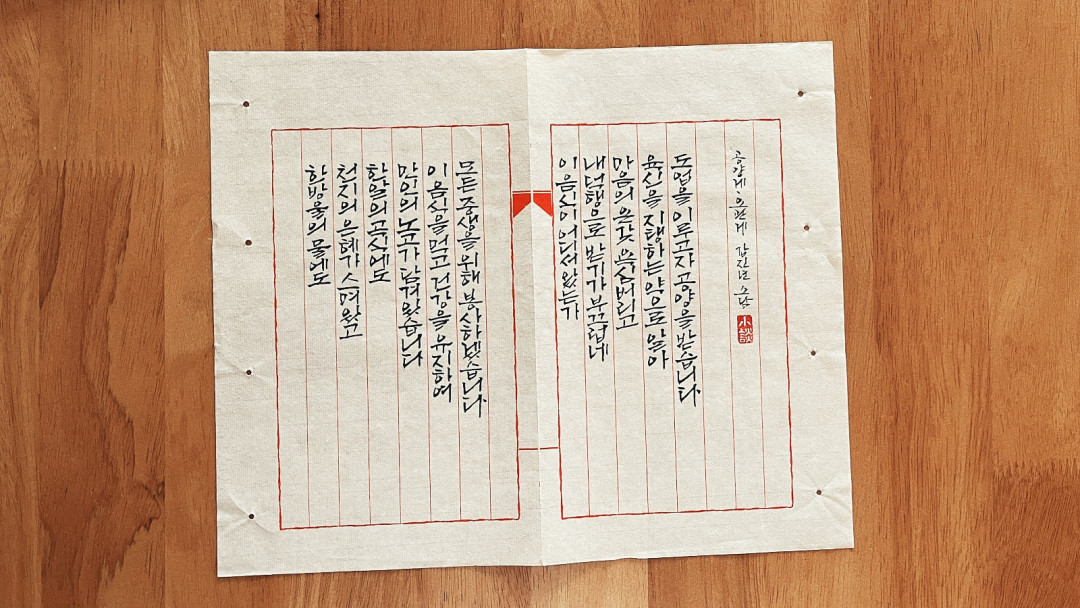 한방울의 물에도
천지의 은혜가 스며있고
한알의 곡식에도
만인의 노고가 담겨있습니다
이 음식을 먹고 건강을 유지하여
모든 중생을 위해 봉사하겠습니다
이 음식이 어디서 왔는가
내 덕행으로 받기가 부끄럽네
마음의 온갖 욕심 버리고
육신을 지탱하는 약으로 알아
도업을 이루고자 공양을 받습니다
공양게·오관게 갑진년 소담
小談